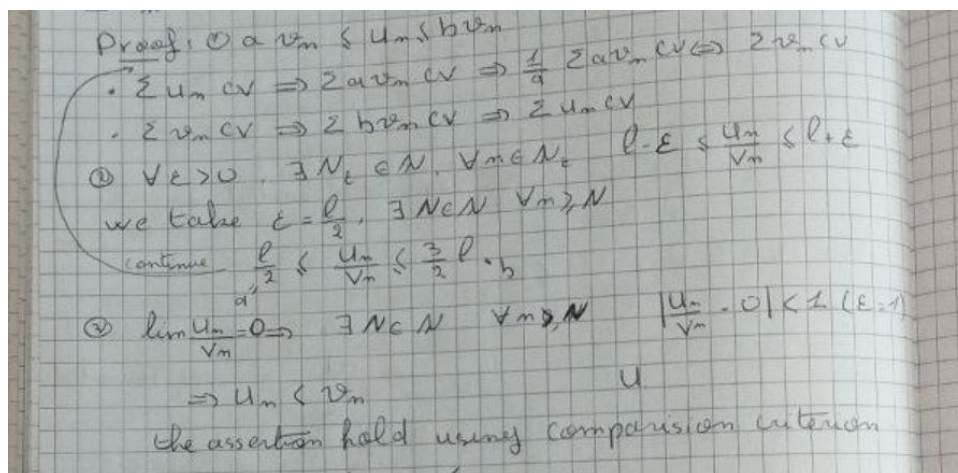 Proof: ① a vn ≤ un ≤ b vn
• Σ un cv ⇒ Σ a vn cv ⇒ 1/a Σ a vn cv ⇔ Σ vn cv
• Σ vn cv ⇒ Σ b vn cv ⇒ Σ un cv
② ∀ε>0, ∃ Nε ∈ N, ∀n ∈ Nε l-ε ≤ un/vn ≤ l+ε
we take ε = l/2, ∃ N∈N ∀n ≥ N
continue l/2 ≤ un/vn ≤ 3/2 l . b
a
② lim un/vn = 0 ⇒ ∃ N∈N ∀n ≥ N |un/vn - 0| < 1 (ε=1)
⇒ un < vn u
the assertion hold using comparision criterion